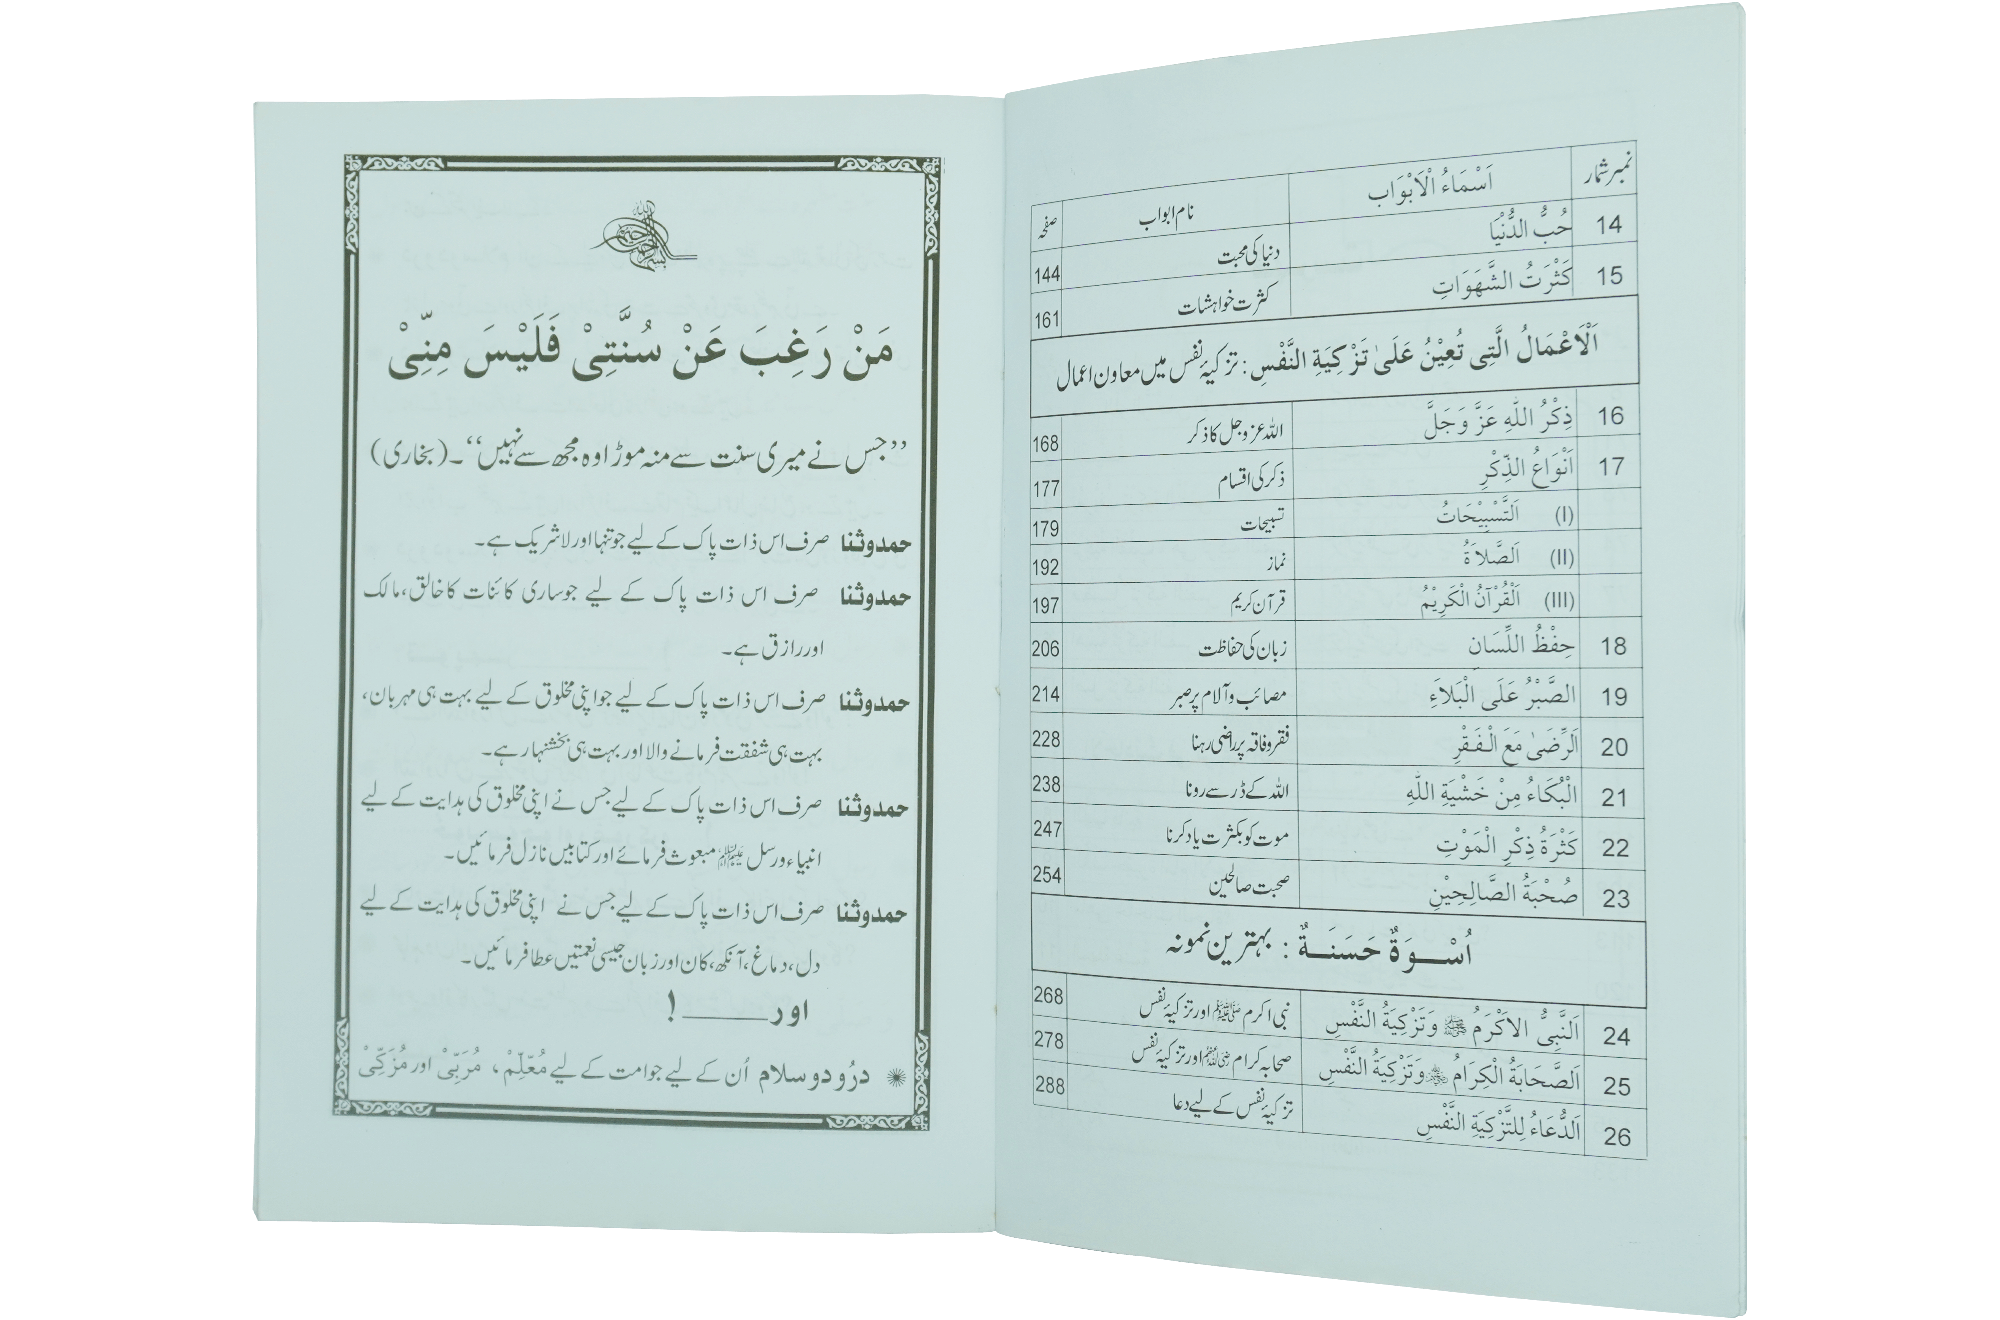 نمبر شمار اَسْمَاءُ الْاَبْوَاب نام ابواب صفحہ
14 حُبُّ الدُّنْيَا دنیا کی محبت 144
15 كَثْرَتُ الشَّهَوَاتِ کثرت خواہشات 161
اَلْاَعْمَالُ الَّتِی تُعِیْنُ عَلَیٰ تَزْکِیَةِ النَّفْسِ : تزکیۂ نفس میں معاون اعمال
16 ذِكْرُ اللّٰهِ عَزَّ وَجَلَّ اللہ عز و جل کا ذکر 168
17 اَنْوَاعُ الذِّكْرِ ذکر کی اقسام 177
(I) اَلتَّسْبِيْحَاتُ تسبیحات 179
(II) اَلصَّلاَةُ نماز 192
(III) اَلْقُرْآنُ الْكَرِيْمُ قرآن کریم 197
18 حِفْظُ اللِّسَانِ زبان کی حفاظت 206
19 الصَّبْرُ عَلَى الْبَلاَءِ مصائب و آلام پر صبر 214
20 اَلرِّضَىٰ مَعَ الْفَقْرِ فقر و فاقہ پر راضی رہنا 228
21 الْبُكَاءُ مِنْ خَشْيَةِ اللّٰهِ اللہ کے ڈر سے رونا 238
22 كَثْرَةُ ذِكْرِ الْمَوْتِ موت کو بکثرت یاد کرنا 247
23 صُحْبَةُ الصَّالِحِيْنِ صحبت صالحین 254
اُسْوَةٌ حَسَنَةٌ : بہترین نمونہ
24 اَلنَّبِيُّ الاَكْرَمُ ﷺ وَتَزْكِيَةُ النَّفْسِ نبی اکرم ﷺ اور تزکیۂ نفس 268
25 اَلصَّحَابَةُ الْكِرَامُ وَتَزْكِيَةُ النَّفْسِ صحابہ کرام اور تزکیۂ نفس 278
26 اَلدُّعَاءُ لِلتَّزْكِيَةِ النَّفْسِ تزکیۂ نفس کے لیے دعا 288
بسم اللہ الرحمن الرحیم
مَنْ رَغِبَ عَنْ سُنَّتِیْ فَلَیْسَ مِنِّیْ
’’جس نے میری سنت سے منہ موڑا وہ مجھ سے نہیں‘‘۔ (بخاری)
حمدوثنا صرف اس ذات پاک کے لیے جو تنہا اور لاشریک ہے۔
حمدوثنا صرف اس ذات پاک کے لیے جو ساری کائنات کا خالق، مالک
اور رازق ہے۔
حمدوثنا صرف اس ذات پاک کے لیے جو اپنی مخلوق کے لیے بہت ہی مہربان،
بہت ہی شفقت فرمانے والا اور بہت ہی بخشنہار ہے۔
حمدوثنا صرف اس ذات پاک کے لیے جس نے اپنی مخلوق کی ہدایت کے لیے
انبیاء و رسل مبعوث فرمائے اور کتابیں نازل فرمائیں۔
حمدوثنا صرف اس ذات پاک کے لیے جس نے اپنی مخلوق کی ہدایت کے لیے
دل، دماغ، آنکھ، کان اور زبان جیسی نعمتیں عطا فرمائیں۔
اور ـــــــــ !
درُود و سلام اُن کے لیے جو امت کے لیے مُعَلِّمْ، مُرَبِّیْ اور مُزَکِّیْ